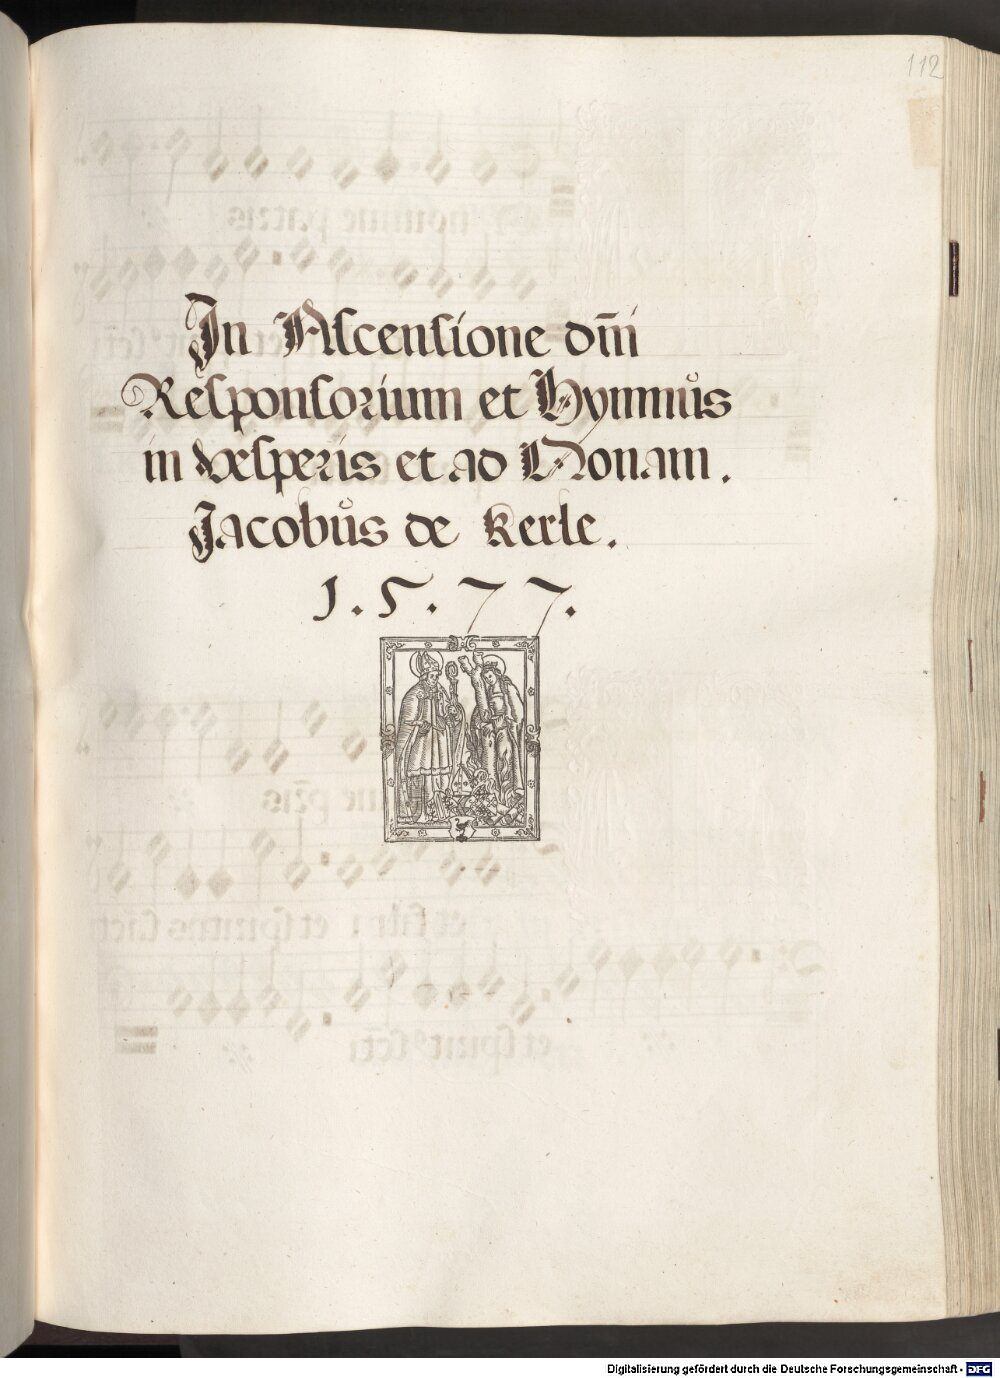 112
In Ascensione dm̄i
Responsorium et Hymnůs
in vesperis et ad Nonam.
Jacobůs de Kerle.
1.5.77.
Digitalisierung gefördert durch die Deutsche Forschungsgemeinschaft - DFG